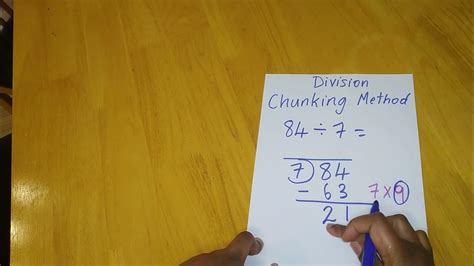 Division
Chunking Method
84 ÷ 7 =
7) 84
- 63 7 × 9
21